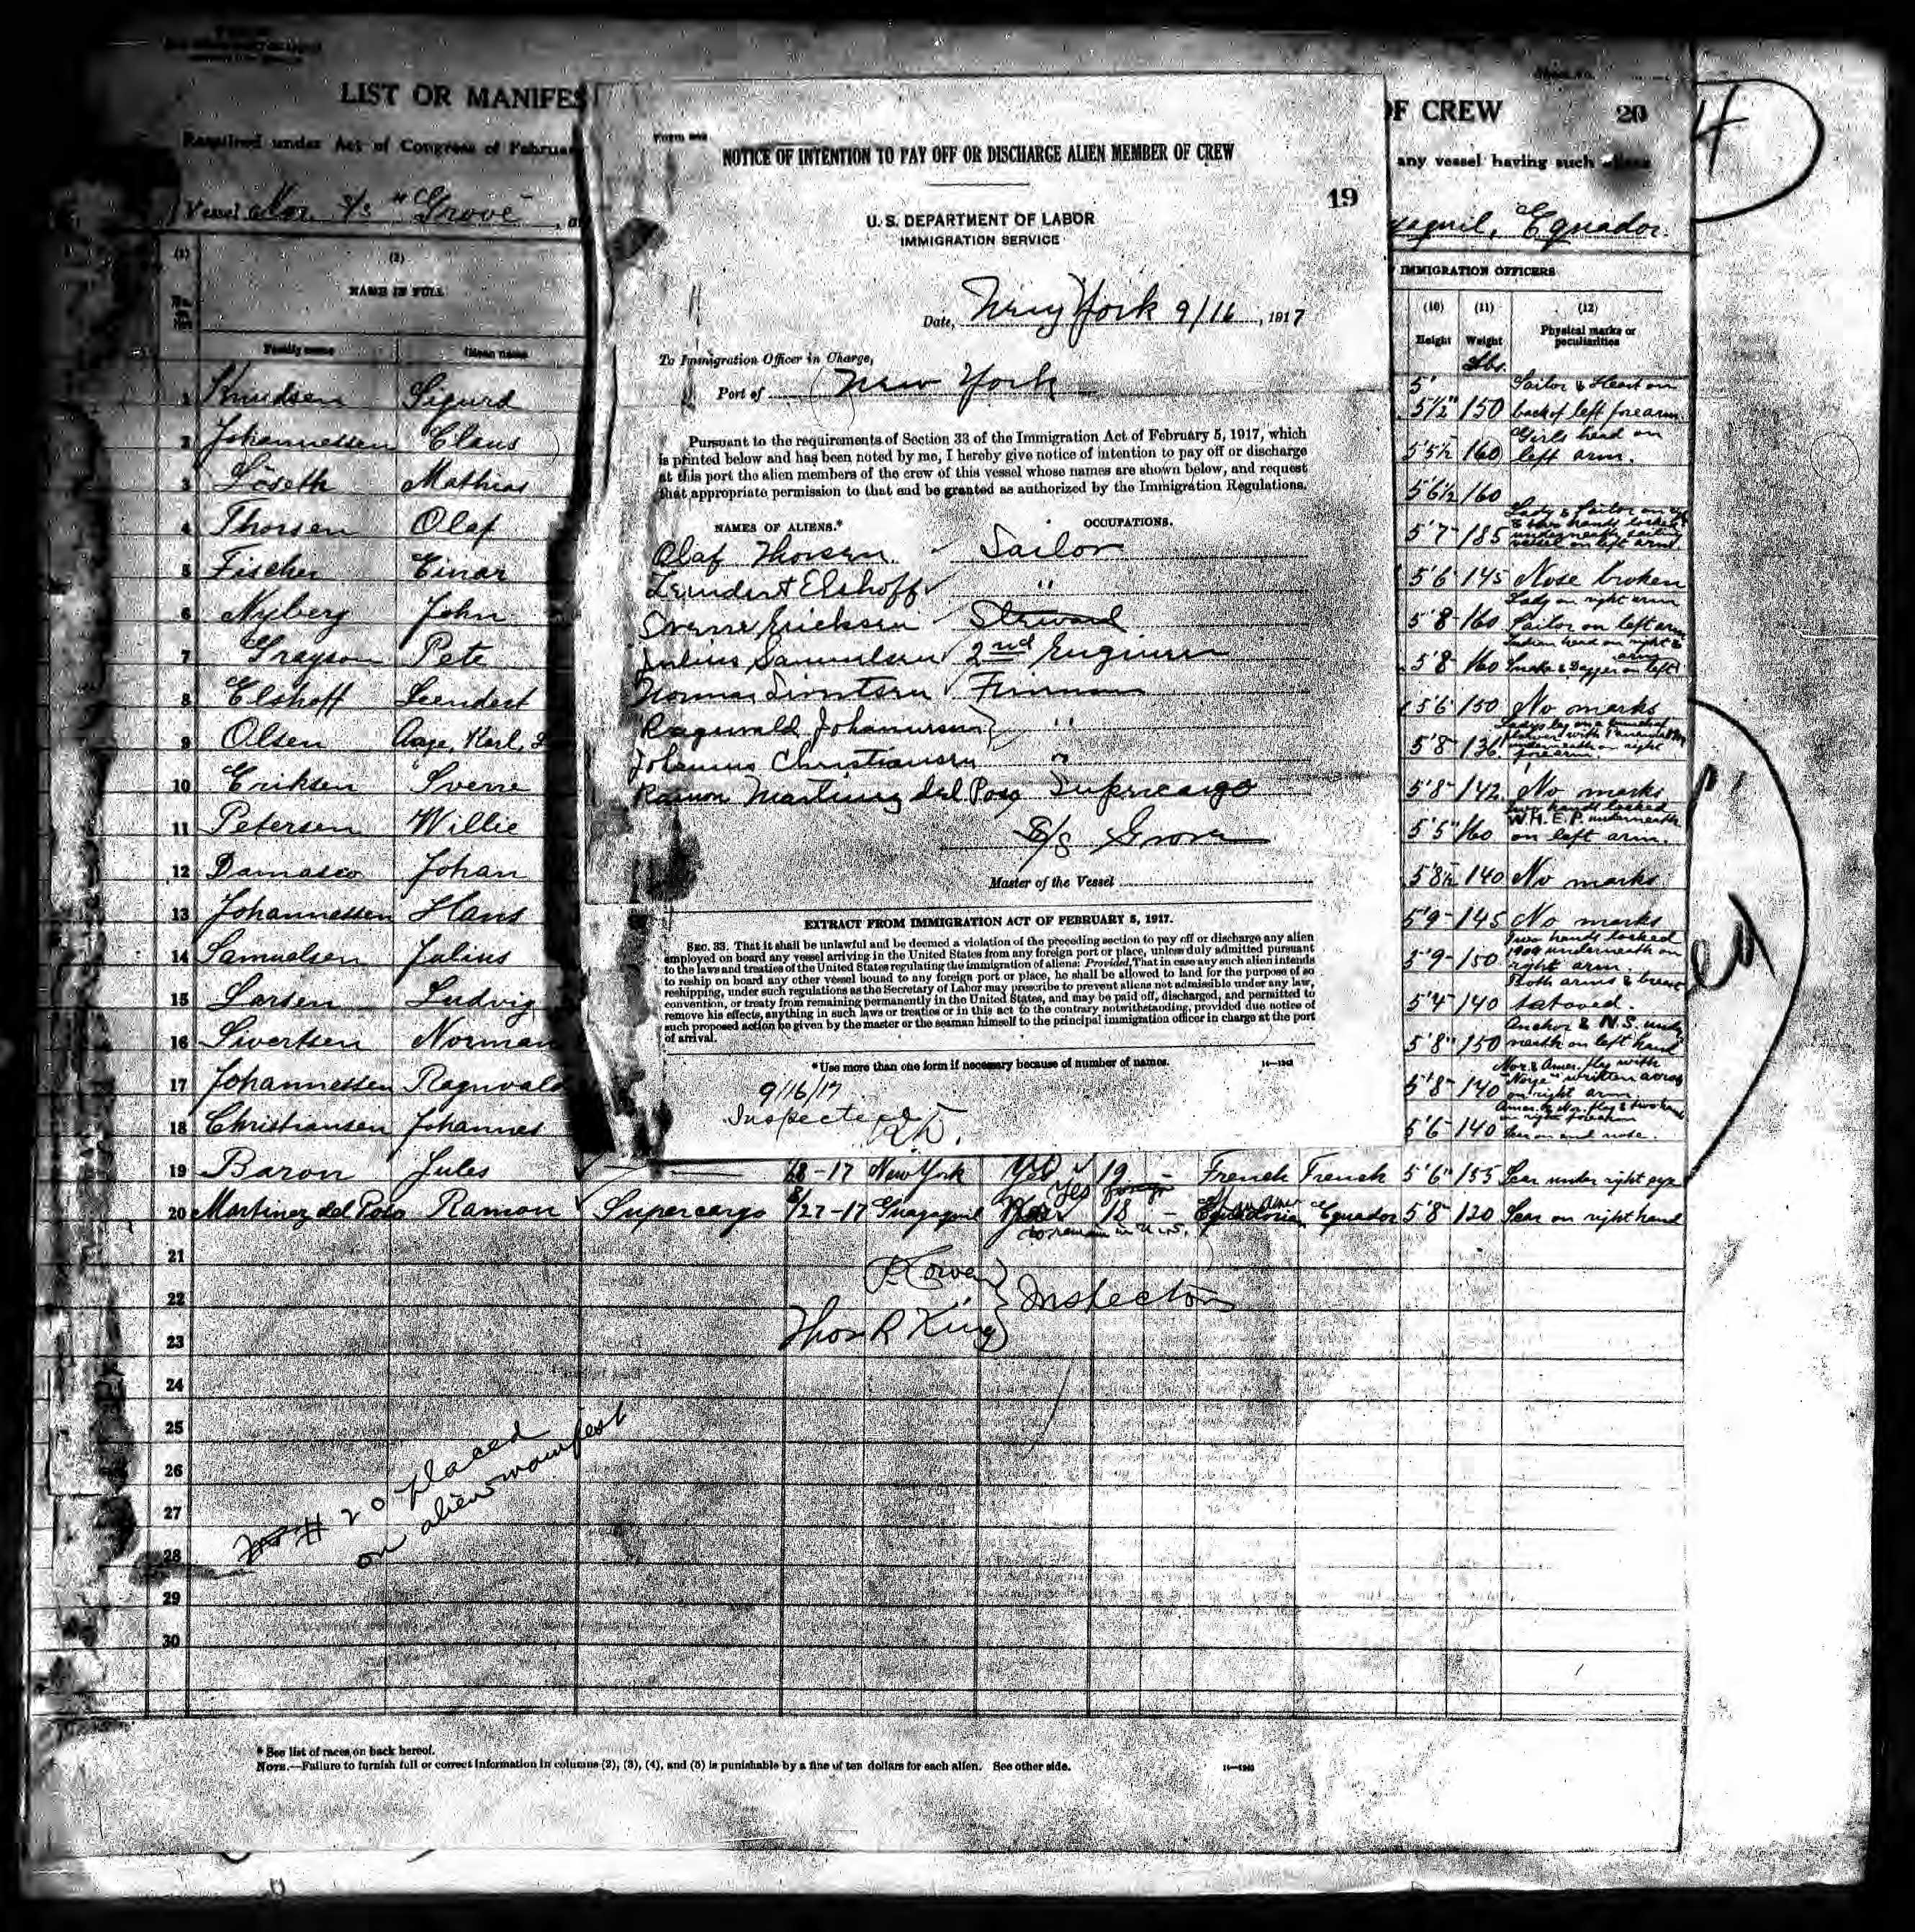 LIST OR MANIFES
OF CREW
20
4
Required under Act of Congress of Februar
any vessel having such aliens
Vessel Nor. S/S "Grove"
yaquil, Equador.
(1)
(2)
NAME IN FULL
Family name
Given name
IMMIGRATION OFFICERS
(10) (11) (12)
Height Weight Physical marks or
peculiarities
Lbs.
1 Knudsen Sigurd
2 Johannessen Claus
3 Löseth Mathias
4 Thorsen Olaf
5 Fischer Einar
6 Nyberg John
7 Grayson Pete
8 Elshoff Leendert
9 Olsen Aage, Karl,
10 Eriksen Sverre
11 Petersen Willie
12 Damasco Johan
13 Johannessen Hans
14 Samuelsen Julius
15 Larsen Ludvig
16 Sivertsen Norman
17 Johannessen Ragnvald
18 Christiansen Johannes
Form
NOTICE OF INTENTION TO PAY OFF OR DISCHARGE ALIEN MEMBER OF CREW
19
U. S. DEPARTMENT OF LABOR
IMMIGRATION SERVICE
Date, New York 9/16, 1917
To Immigration Officer in Charge,
Port of New York
Pursuant to the requirements of Section 33 of the Immigration Act of February 5, 1917, which
is printed below and has been noted by me, I hereby give notice of intention to pay off or discharge
at this port the alien members of the crew of this vessel whose names are shown below, and request
that appropriate permission to that end be granted as authorized by the Immigration Regulations.
NAMES OF ALIENS.* OCCUPATIONS.
Olaf Thorsen Sailor
Leindert Elshoff "
Sverre Ericksen Steward
Julius Samuelsen 2nd Engineer
Norman Sivertsen Fireman
Ragnvald Johannessen "
Johannes Christiansen "
Ramon Martinez del Poso Supercargo
S/S Grove
Master of the Vessel
EXTRACT FROM IMMIGRATION ACT OF FEBRUARY 5, 1917.
SEC. 33. That it shall be unlawful and be deemed a violation of the preceding section to pay off or discharge any alien
employed on board any vessel arriving in the United States from any foreign port or place, unless duly admitted pursuant
to the laws and treaties of the United States regulating the immigration of aliens: Provided, That in case any such alien intends
to reship on board any other vessel bound to any foreign port or place, he shall be allowed to land for the purpose of so
reshipping, under such regulations as the Secretary of Labor may prescribe to prevent aliens not admissible under any law,
convention, or treaty from remaining permanently in the United States, and may be paid off, discharged, and permitted to
remove his effects, anything in such laws or treaties or in this act to the contrary notwithstanding, provided due notice of
such proposed action be given by the master or the seaman himself to the principal immigration officer in charge at the port
of arrival.
*Use more than one form if necessary because of number of names.
9/16/17
Inspected
5' Sailor & Heart on
5½" 150 back of left forearm
Girls head on
5'5½ 160 left arm.
5'6½ 160
5'7" 185 vessel on left arm
5'6" 145 Nose broken
Lady on right arm
5'8" 160 Sailor on left arm
Indian head on right
arm
5'8" 160 Snake & Dagger on left
5'6" 150 No marks
5'8" 136 underneath on right
forearm.
5'8" 142 No marks
Two hands locked
W.H.E.P. underneath
5'5" 160 on left arm.
5'8½ 140 No marks
5'9" 145 No marks
Two hands locked
1909 underneath on
5'9" 150 right arm.
Both arms & breast
5'4" 140 tatooed.
Anchor & N.S. under
5'8" 150 neath on left hand
Nor. & Amer. flag with
"Norge" written across
5'8" 140 on right arm.
Amer. & Nor. flag & two hands
on right forearm
5'6" 140 Scar on end nose.
19 Baron Jules 8-17 New York Yes 19 - French French 5'6" 155 Scar under right eye
20 Martinez del Poso Ramon Supercargo 8/27-17 Guayaquil Yes 18 - Equador 5'8" 120 Scar on right hand
to remain in U.S.
21
22
Inspectors
Thos R King
23
24
25
26
27
28
29
30
# 20 placed
on alien manifest
* See list of races on back hereof.
NOTE.—Failure to furnish full or correct information in columns (2), (3), (4), and (5) is punishable by a fine of ten dollars for each alien. See other side.